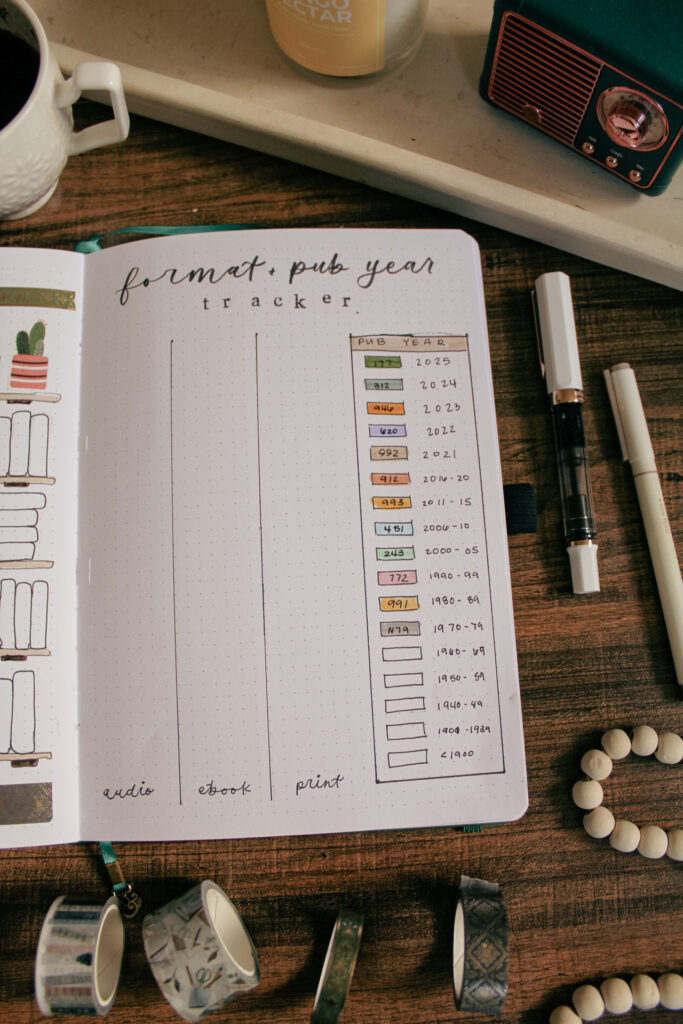 NECTAR
format + pub year
tracker.
PUB YEAR
177 2025
312 2024
946 2023
620 2022
992 2021
912 2016-20
993 2011-15
451 2006-10
243 2000-05
772 1990-99
991 1980-89
N79 1970-79
1960-69
1950-59
1940-49
1900-1939
<1900
audio ebook print